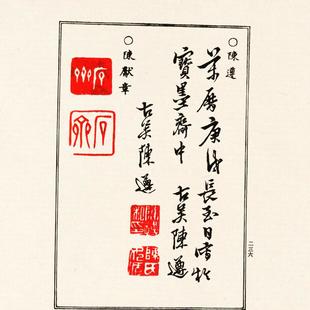 ○陳遵
萬曆庚戌長至日書於
寶墨齋中 古吳陳遵
古吳陳遵
○陳獻章
石
石
二三六